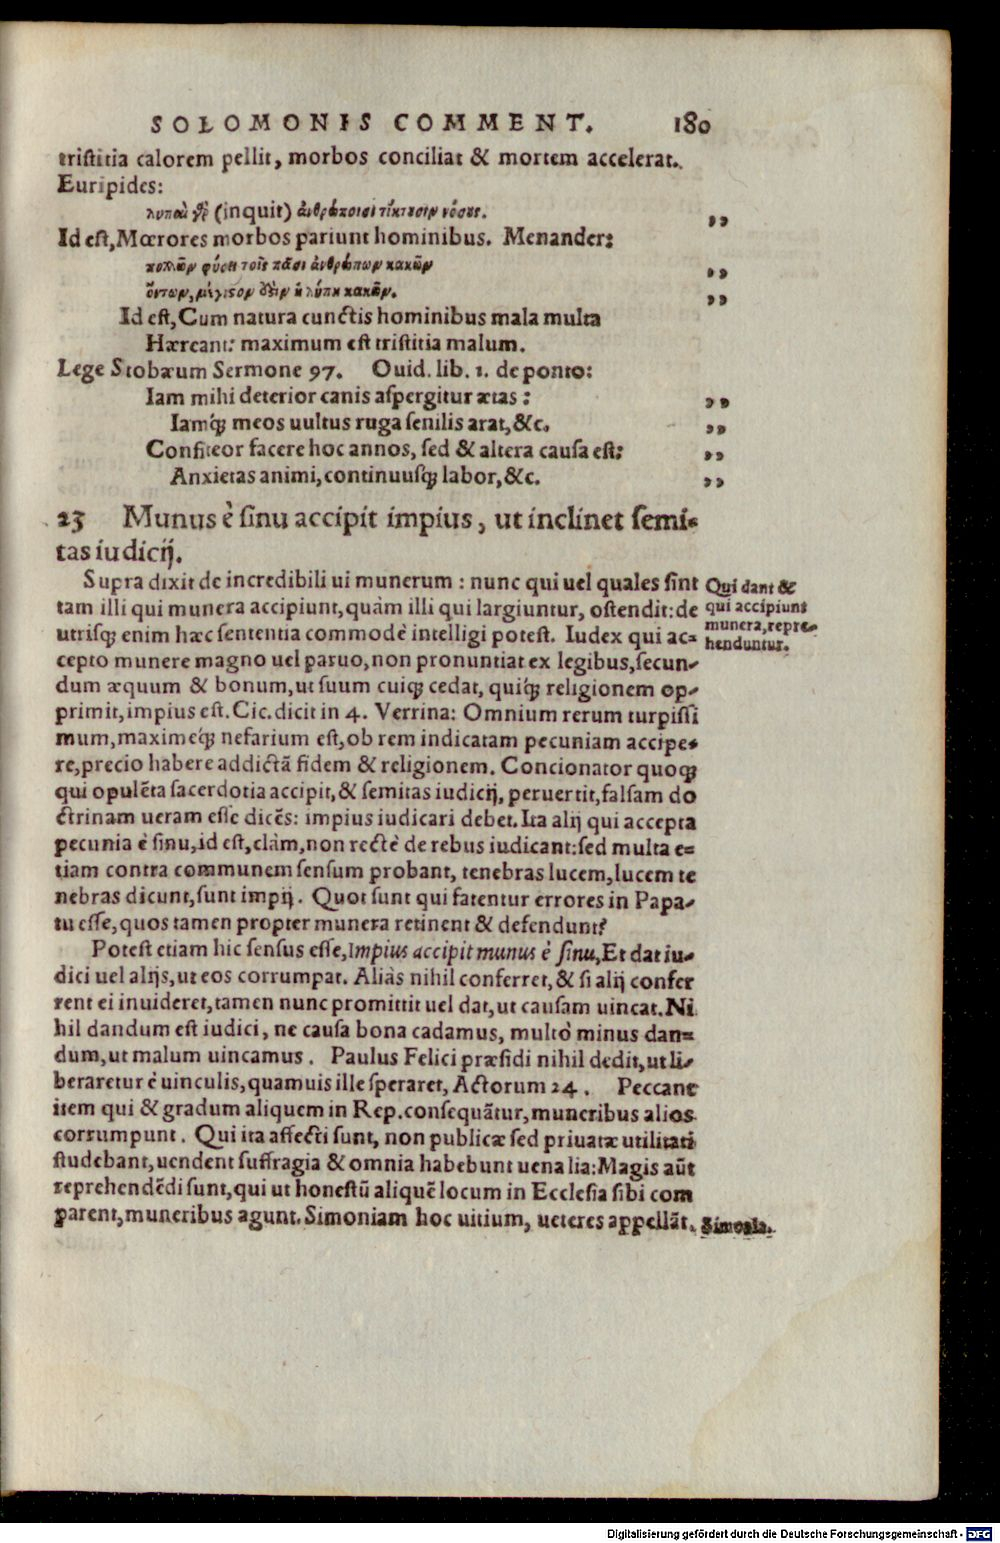 SOLOMONIS COMMENT. 180
tristitia calorem pellit, morbos conciliat & mortem accelerat.
Euripides:
λυπαὶ γὰρ (inquit) ἀνθρώποισι τίκτουσιν νόσους. ,,
Id est, Mœrores morbos pariunt hominibus. Menander:
πολλῶν φύσει τοῖς πᾶσι ἀνθρώπων κακῶν ,,
ὄντων, μέγιστον ἡ λύπη κακῶν. ,,
Id est, Cum natura cunctis hominibus mala multa
Hæreant: maximum est tristitia malum.
Lege Stobæum Sermone 97. Ouid. lib. 1. de ponto:
Iam mihi deterior canis aspergitur ætas: ,,
Iamq́; meos uultus ruga senilis arat, &c. ,,
Confiteor facere hoc annos, sed & altera causa est: ,,
Anxietas animi, continuusq; labor, &c. ,,
23 Munus è sinu accipit impius, ut inclinet semi-
tas iudicij.
Supra dixit de incredibili ui munerum: nunc qui uel quales sint Qui dant &
tam illi qui munera accipiunt, quàm illi qui largiuntur, ostendit: de qui accipiunt
utrisq; enim hæc sententia commodè intelligi potest. Iudex qui ac= munera, repre-
henduntur.
cepto munere magno uel paruo, non pronuntiat ex legibus, secun-
dum æquum & bonum, ut suum cuiq; cedat, quiq́; religionem op-
primit, impius est. Cic. dicit in 4. Verrina: Omnium rerum turpissi
mum, maximeq́; nefarium est, ob rem indicatam pecuniam accipe-
re, precio habere addictã fidem & religionem. Concionator quoq;
qui opulẽta sacerdotia accipit, & semitas iudicij, peruertit, falsam do
ctrinam ueram esse dicẽs: impius iudicari debet. Ita alij qui accepta
pecunia è sinu, id est, clàm, non rectè de rebus iudicant: sed multa e=
tiam contra communem sensum probant, tenebras lucem, lucem te
nebras dicunt, sunt impij. Quot sunt qui fatentur errores in Papa-
tu esse, quos tamen propter munera retinent & defendunt?
Potest etiam hic sensus esse, Impius accipit munus è sinu, Et dat iu-
dici uel alijs, ut eos corrumpat. Aliàs nihil conferret, & si alij confer
rent ei inuideret, tamen nunc promittit uel dat, ut causam uincat. Ni
hil dandum est iudici, ne causa bona cadamus, multò minus dan=
dum, ut malum uincamus. Paulus Felici præsidi nihil dedit, ut li-
beraretur è uinculis, quamuis ille speraret, Actorum 24. Peccant
item qui & gradum aliquem in Rep. consequãtur, muneribus alios
corrumpunt. Qui ita affecti sunt, non publicæ sed priuatæ utilitati
studebant, uendent suffragia & omnia habebunt uenalia: Magis aũt
reprehendẽdi sunt, qui ut honestũ aliquẽ locum in Ecclesia sibi com
parent, muneribus agunt. Simoniam hoc uitium, ueteres appellãt. Simonia.
Digitalisierung gefördert durch die Deutsche Forschungsgemeinschaft - DFG